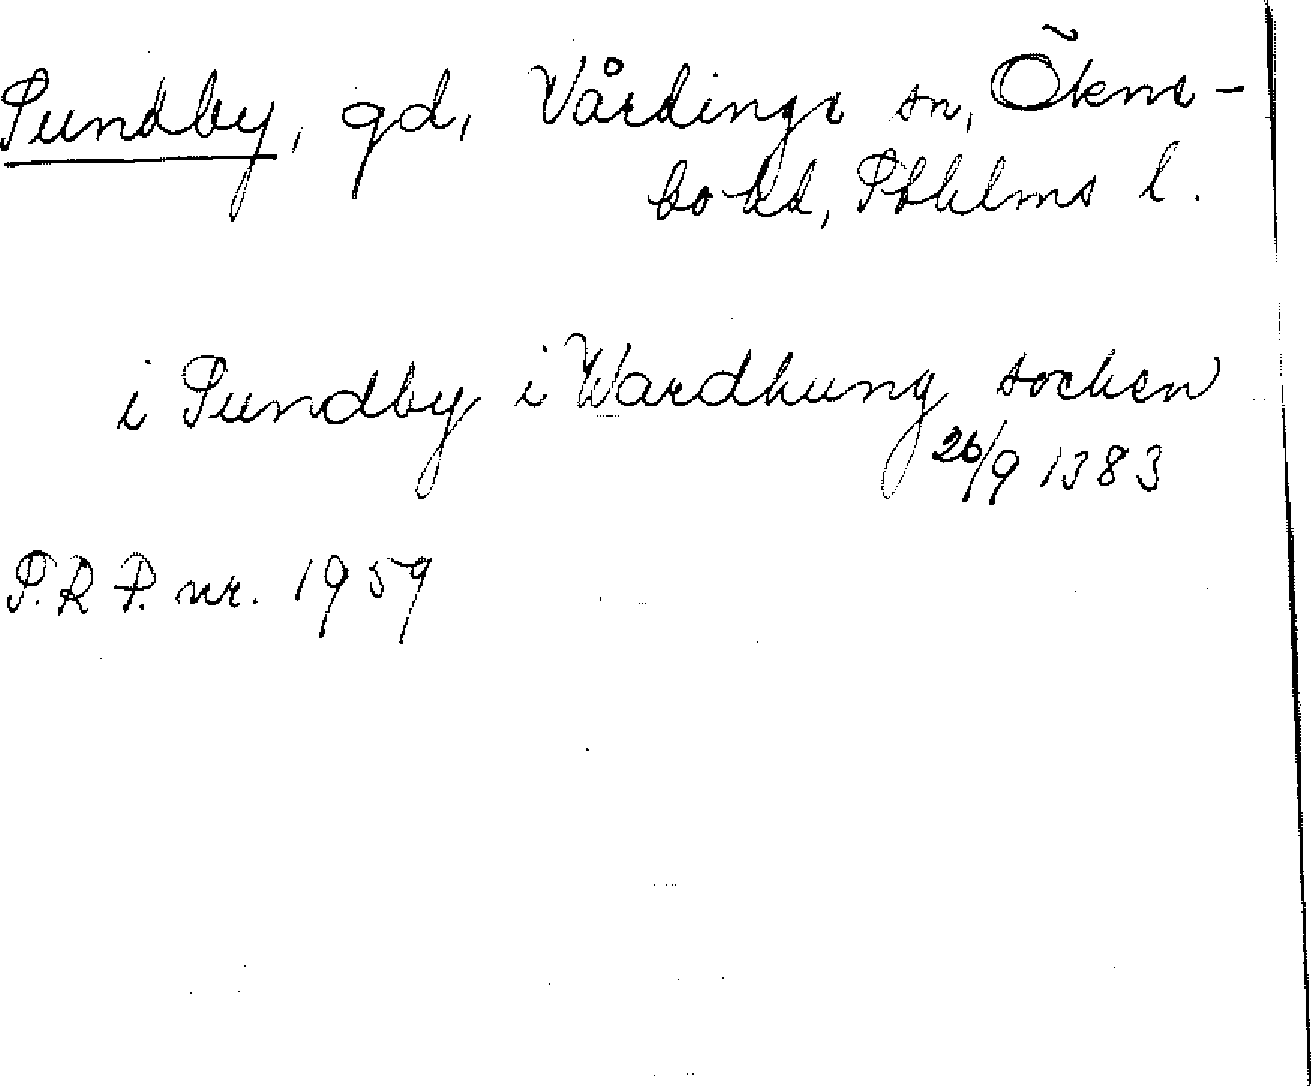 Sundby, gd, Vårdinge sn, Ökne-
bo hd, Sthlms l.
i Sundby i Wardhung socken
26/9 1383
S.R.P. nr. 1959